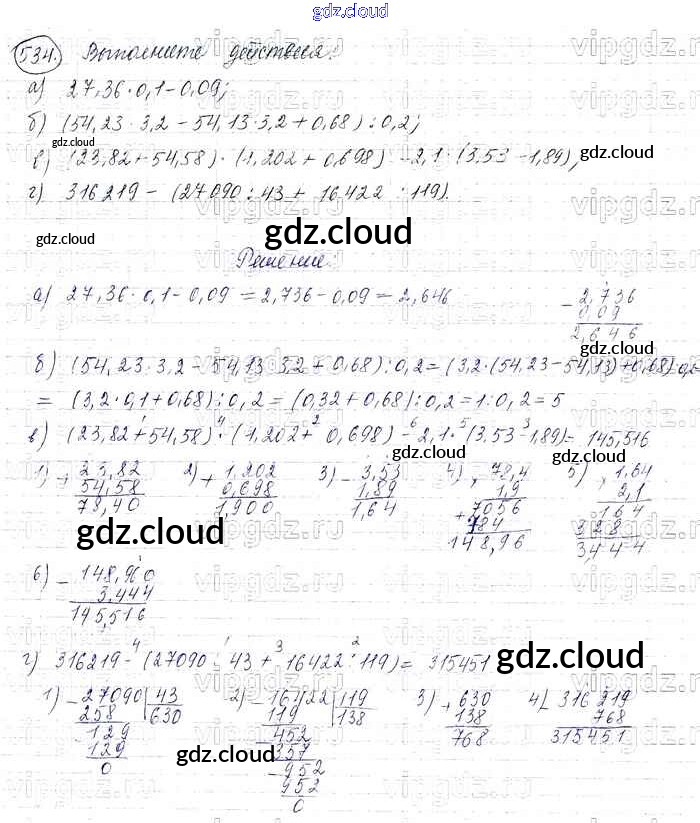 gdz.cloud
534. Выполните действия:
а) 27,36·0,1-0,09;
б) (54,23·3,2-54,13·3,2+0,68):0,2;
в) (23,82+54,58)·(1,202+0,698)-2,1·(3,53-1,89);
г) 316219-(27090:43+16422:119).
Решение:
а) 27,36·0,1-0,09=2,736-0,09=2,646
2,736
0,09
2,646
б) (54,23·3,2-54,13·3,2+0,68):0,2=(3,2·(54,23-54,13)+0,68):0,2=
=(3,2·0,1+0,68):0,2=(0,32+0,68):0,2=1:0,2=5
в) (23,82+54,58)·(1,202+0,698)-2,1·(3,53-1,89)=145,516
1) + 23,82
54,58
78,40
2) + 1,202
0,698
1,900
3) - 3,53
1,89
1,64
4) × 78,4
1,9
+ 7056
784
148,96
5) × 1,64
2,1
164
328
3,444
6) - 148,960
3,444
145,516
г) 316219-(27090:43+16422:119)=315451
1) - 27090 | 43
258 | 630
- 129
129
0
2) - 16422 | 119
119 | 138
- 452
357
- 952
952
0
3) + 630
138
768
4) - 316219
768
315451